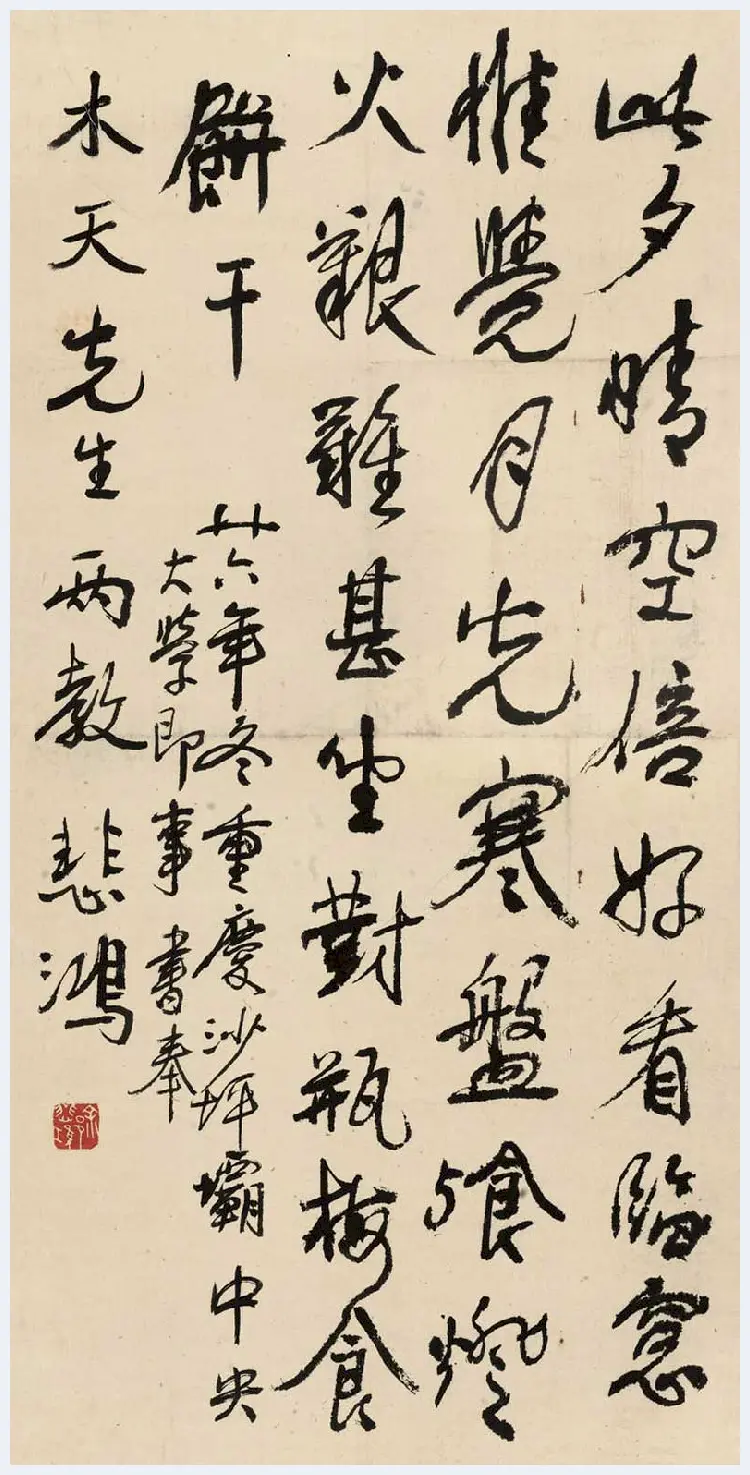 此夕晴空倍好看臨窓
惟覺月光寒盤飧燈
火艱難甚坐對瓶梅食
餅干
廿六年冬重慶沙坪壩中央
大學即事書奉
木天先生兩教
悲鴻